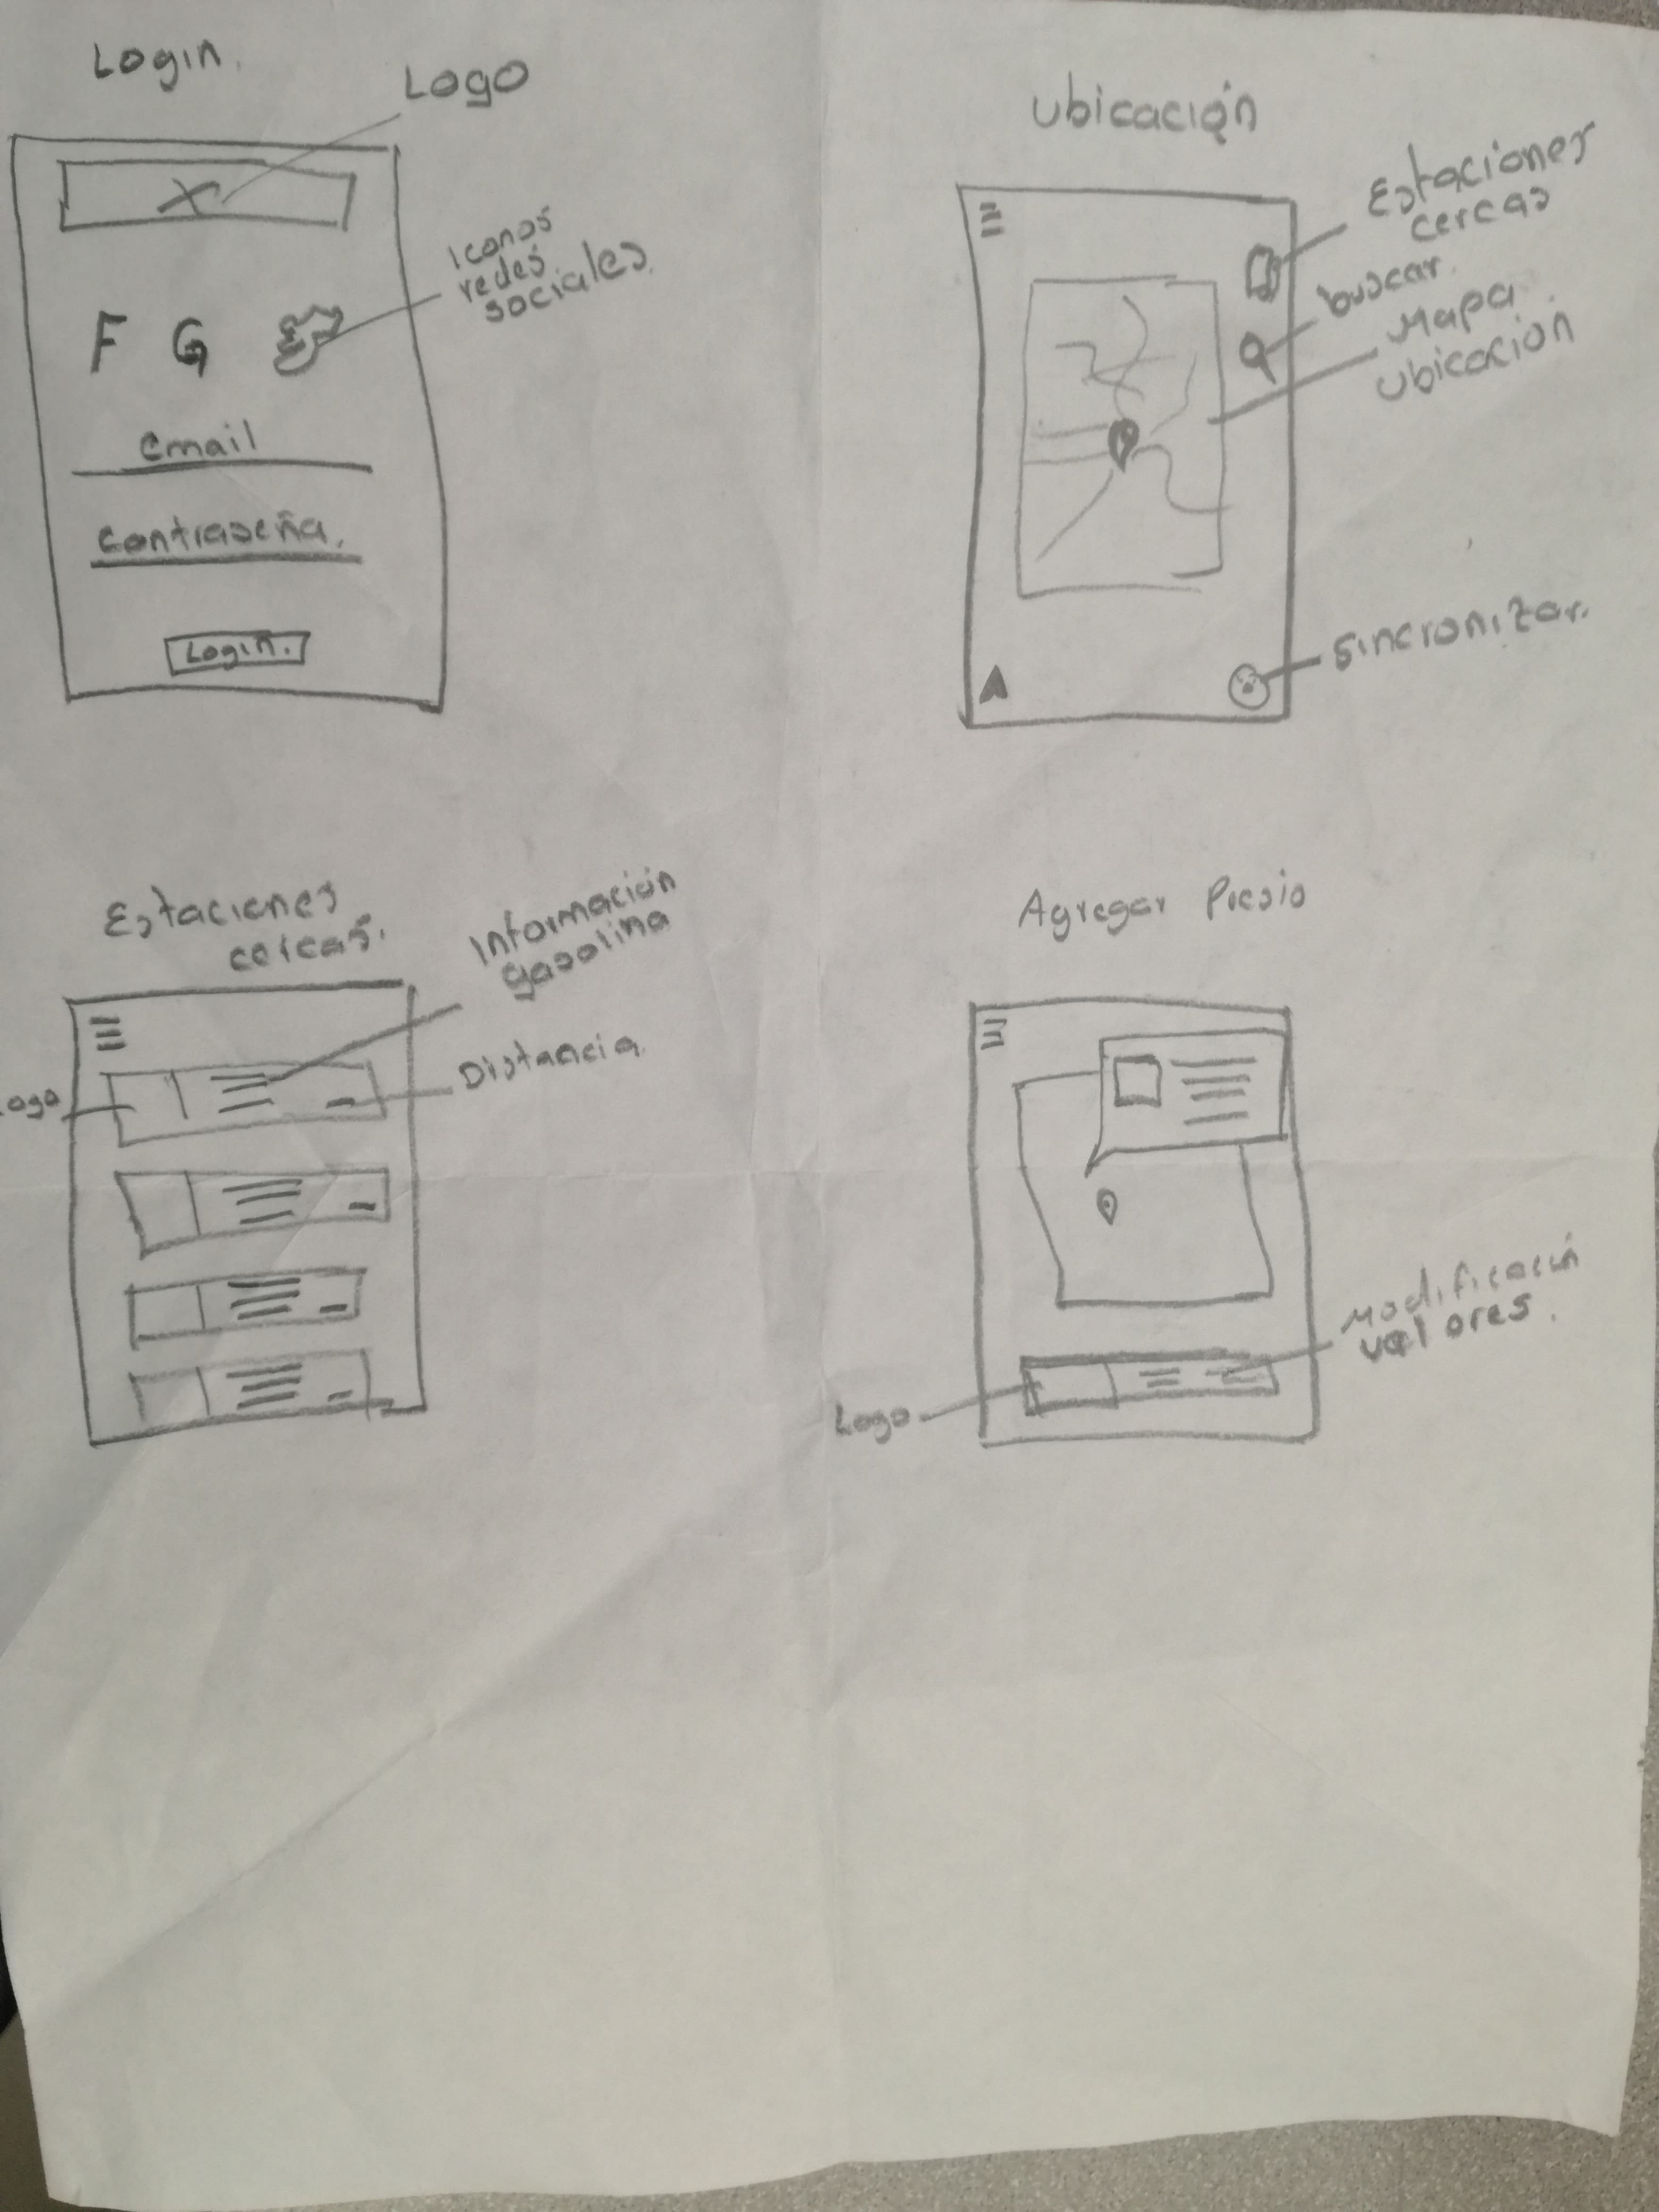 Login.
Logo
Iconos
redes
sociales.
F G
email
contraseña.
Login.
Ubicación
Estaciones
cercas
buscar.
Mapa
ubicación
Sincronizar.
Estaciones
cercas.
Información
gasolina
Distancia.
Logo
Agregar Presio
Modificación
valores.
Logo